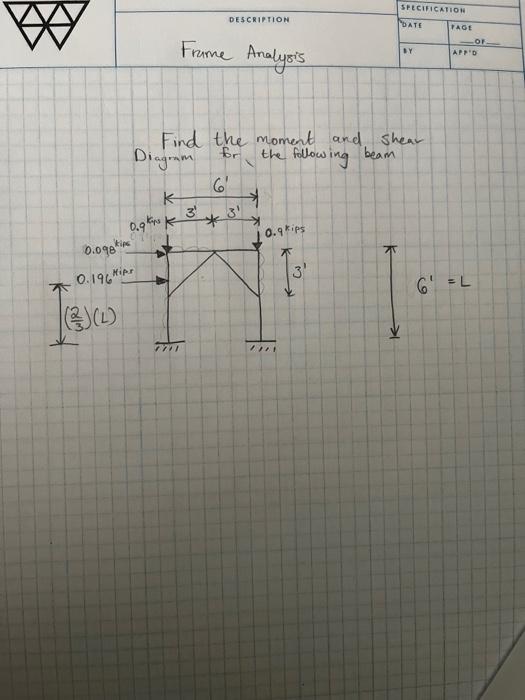 SPECIFICATION
DESCRIPTION
DATE
PAGE
OF
BY
APP'D
Frame Analysis
Find the moment and shear
Diagram for the following beam
6'
3' 3'
0.9 kips
0.9 kips
0.098 kips
0.196 kips
3'
6' = L
(2/3)(L)